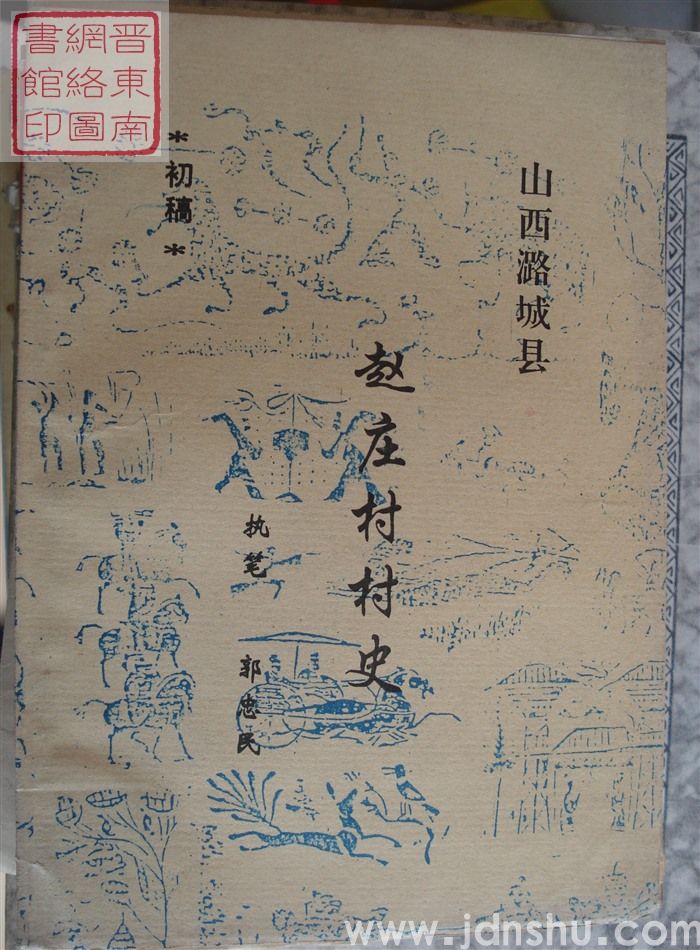 山西潞城县
赵庄村村史
执笔 郭忠民
*初稿*
晋東南
網絡圖
書館印
www.jdnshu.com